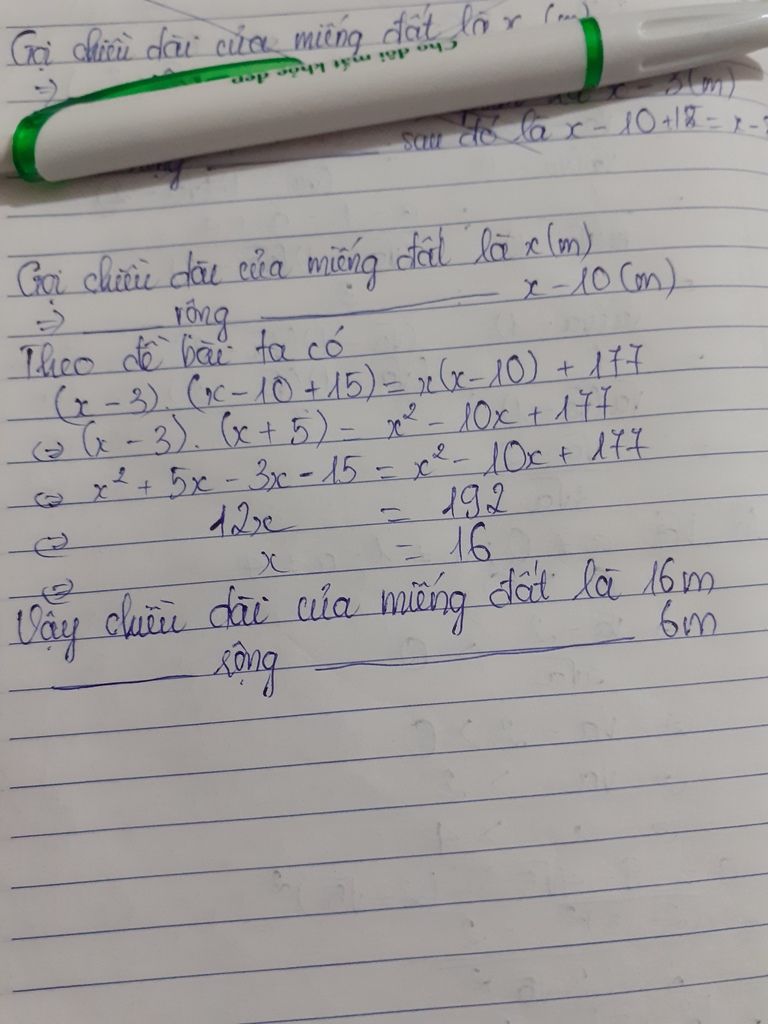 Gọi chiều dài của miếng đất là x (m)
⇒
Cho đôi mắt khỏe đẹp
x - 3 (m)
sau đó là x - 10 + 18 = x -
Gọi chiều dài của miếng đất là x (m)
⇒ ___ rộng ___ x - 10 (m)
Theo đề bài ta có
(x - 3). (x - 10 + 15) = x(x - 10) + 177
⇔ (x - 3). (x + 5) = x² - 10x + 177
⇔ x² + 5x - 3x - 15 = x² - 10x + 177
⇔ 12x = 192
⇔ x = 16
Vậy chiều dài của miếng đất là 16m
___ rộng ___ 6m